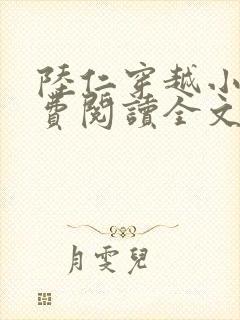 陸仁穿越小
費閱讀全文
月雯兒